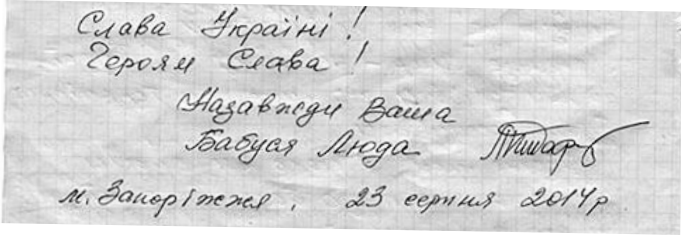 Слава Україні!
Героям Слава!
Назавжди Ваша
Бабуся Люда
м. Запоріжжя, 23 серпня 2014р